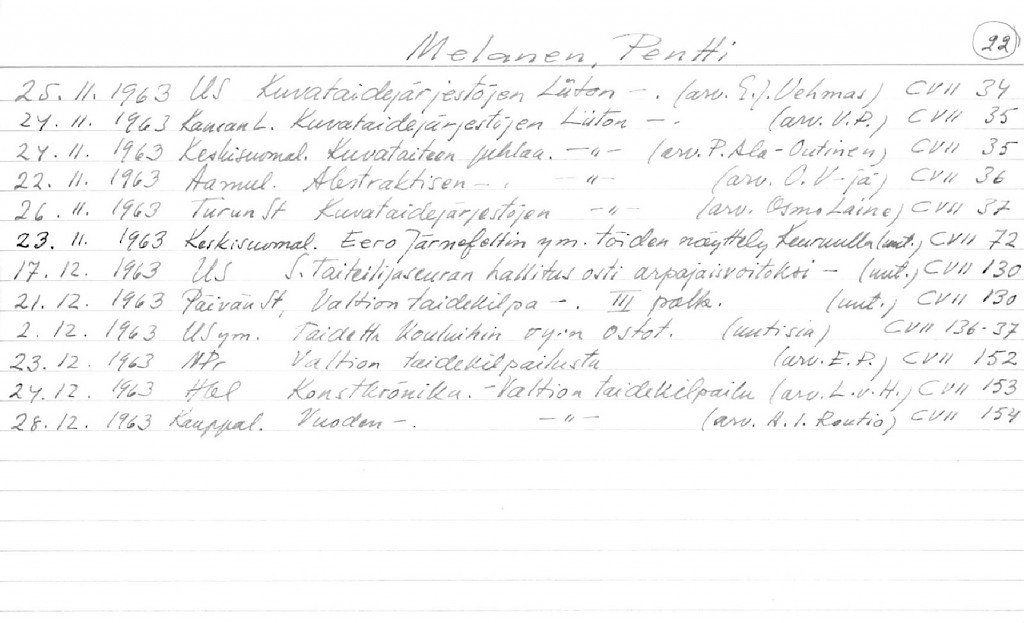 22
Melanen, Pentti
25. 11. 1963 US Kuvataidejärjestöjen Liiton –. (arv. E.J. Vehmas) CVII 34
24. 11. 1963 Kansan L. Kuvataidejärjestöjen Liiton –. (arv. V.P.) CVII 35
24. 11. 1963 Keskisuomal. Kuvataiteen juhlaa. –"– (arv. P. Ala-Outinen) CVII 35
22. 11. 1963 Aamul. Abstraktisen –. –"– (arv. O. V-jä) CVII 36
26. 11. 1963 Turun St Kuvataidejärjestöjen –"– (arv. Osmo Laine) CVII 37
23. 11. 1963 Keskisuomal. Eero Järnefeltin ym. töiden näyttely Keuruulla (uut.) CVII 72
17. 12. 1963 US S. Taiteilijaseuran hallitus osti arpajaisvoitoksi – (uut.) CVII 130
21. 12. 1963 Päivän St, Valtion taidekilpa –. III palk. (uut.) CVII 130
2. 12. 1963 US ym. Taidetta Kouluihin ry:n ostot. (uutisia) CVII 136-37
23. 12. 1963 NPr Valtion taidekilpailusta (arv. E.P.) CVII 152
24. 12. 1963 Hbl Konstkrönika. - Valtion taidekilpailu (arv. L.v.H.) CVII 153
28. 12. 1963 Kauppal. Vuoden –. –"– (arv. H. I. Routio) CVII 154